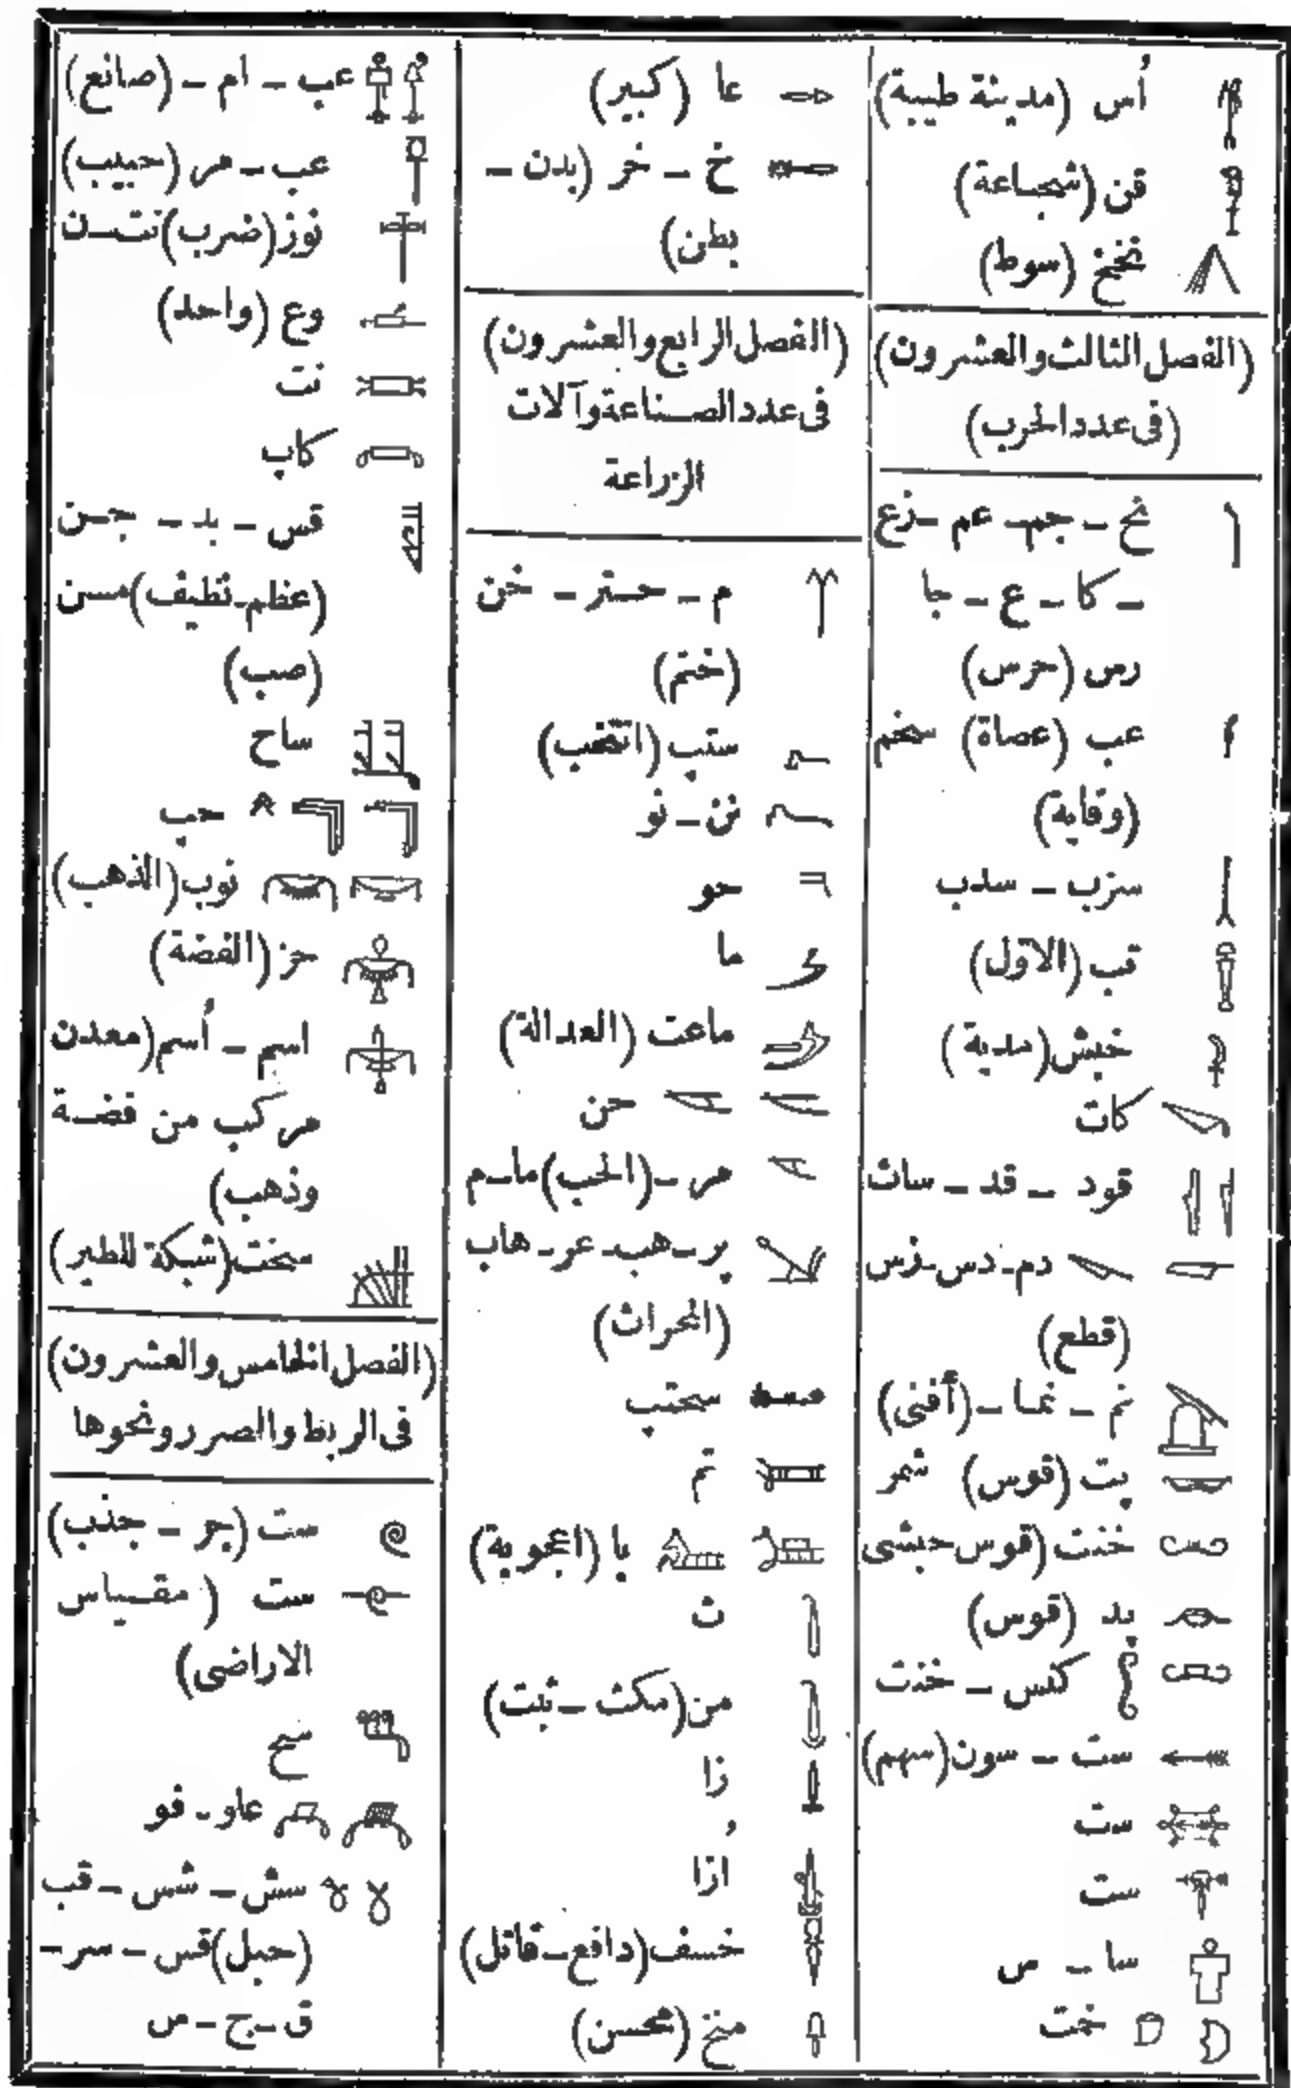 أُس (مدينة طيبة)
قن (شجاعة)
نخخ (سوط)
(الفصل الثالث والعشرون)
(فى عدد الحرب)
نح - جم - عم - زع
- كا - ع - جا
رس (حرس)
عب (عصاة) سخم
(وقاية)
سزب - سدب
تب (الاول)
خبش (مدية)
كات
قود - قد - سات
دم - دس - زس
(قطع)
نم - نما - (أفنى)
پت (قوس) شمر
خنت (قوس حبشى
پد (قوس)
كنس - خنت
ست - سون (سهم)
ست
ست
سا - س
خت
عا (كبير)
خ - خر (بدن -
بطن)
(الفصل الرابع والعشرون)
فى عدد الصناعة وآلات
الزراعة
م - حستر - خن
(ختم)
ستپ (انتخب)
نن - نو
حو
ما
ماعت (العدالة)
حن
مر - (الحب) ما - م
پر - هب - عر - هاب
(المحراث)
سحتپ
تم
با (اعجوبة)
ث
من (مكث - ثبت)
زا
اُزا
خسف (دافع - قاتل)
منخ (محسن)
عب - ام - (صانع)
عب - مر (حبيب)
نوز (ضرب) نت - ن
وع (واحد)
نت
كاپ
قس - بد - جن
(عظم - نظيف) مسن
(صب)
ساح
حپ
نوب (الذهب)
حز (الفضة)
اسم - أُسم (معدن
مركب من فضة
وذهب)
سخت (شبكة للطير)
(الفصل الخامس والعشرون)
فى الربط والصرر ونحوها
ست (جر - جذب)
ست (مقياس
الاراضى)
سح
عاو - فو
سش - شس - قب
(حبل) قس - سر -
ق - ج - س